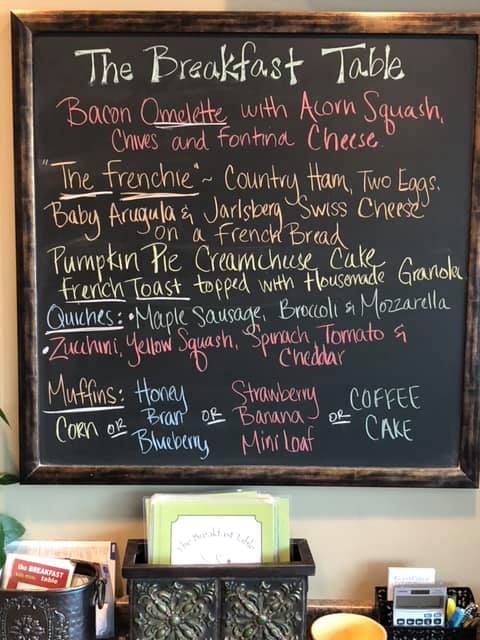 The Breakfast Table
Bacon Omelette with Acorn Squash,
Chives and Fontina Cheese.
"The Frenchie" ~ Country Ham, Two Eggs,
Baby Arugula & Jarlsberg Swiss Cheese
on a French Bread
Pumpkin Pie Creamcheese Cake
French Toast topped with Housemade Granola
Quiches: • Maple Sausage, Broccoli & Mozzarella
• Zucchini, Yellow Squash, Spinach Tomato &
Cheddar
Muffins:
Corn or
Honey
Bran
Blueberry
or
Strawberry
Banana
Mini Loaf
or
COFFEE
CAKE
the Breakfast Table
the BREAKFAST
table